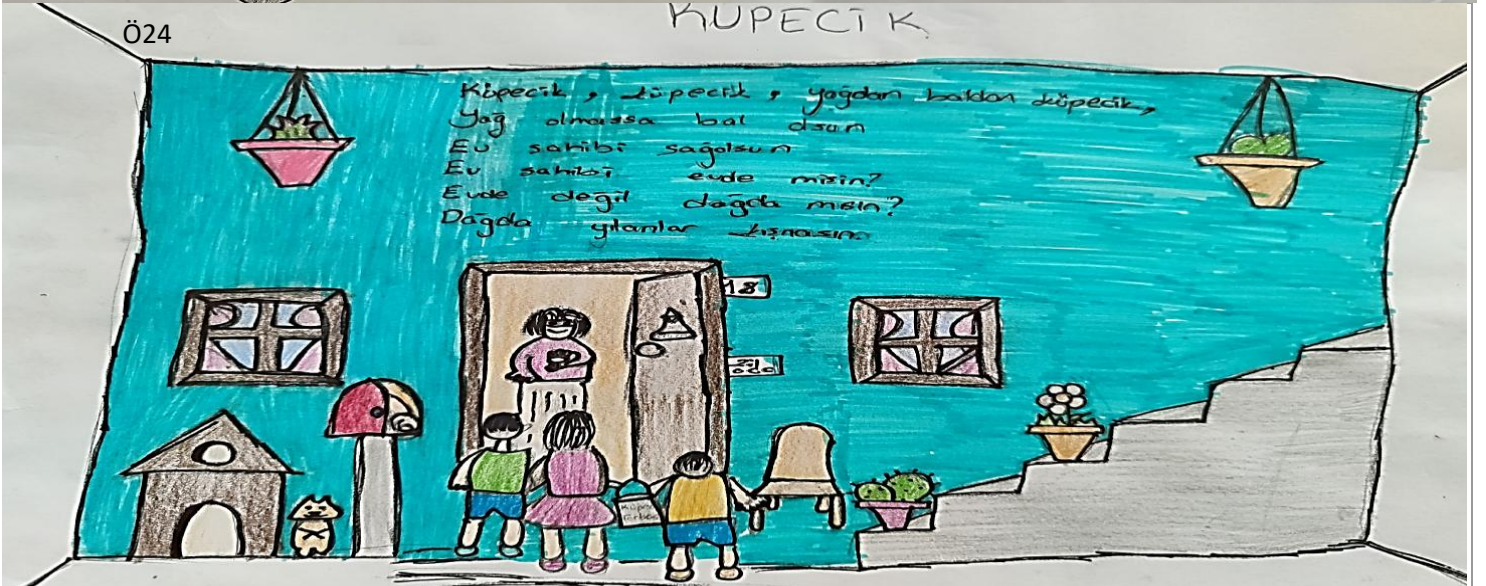 Ö24
KÜPECİK
Küpecik, küpecik, yağdan baldan küpecik,
Yağ olmassa bal olsun
Ev sahibi sağolsun
Ev sahibi evde misin?
Evde değil dağda mısın?
Dağda yılanlar kışnasın
18
Zil